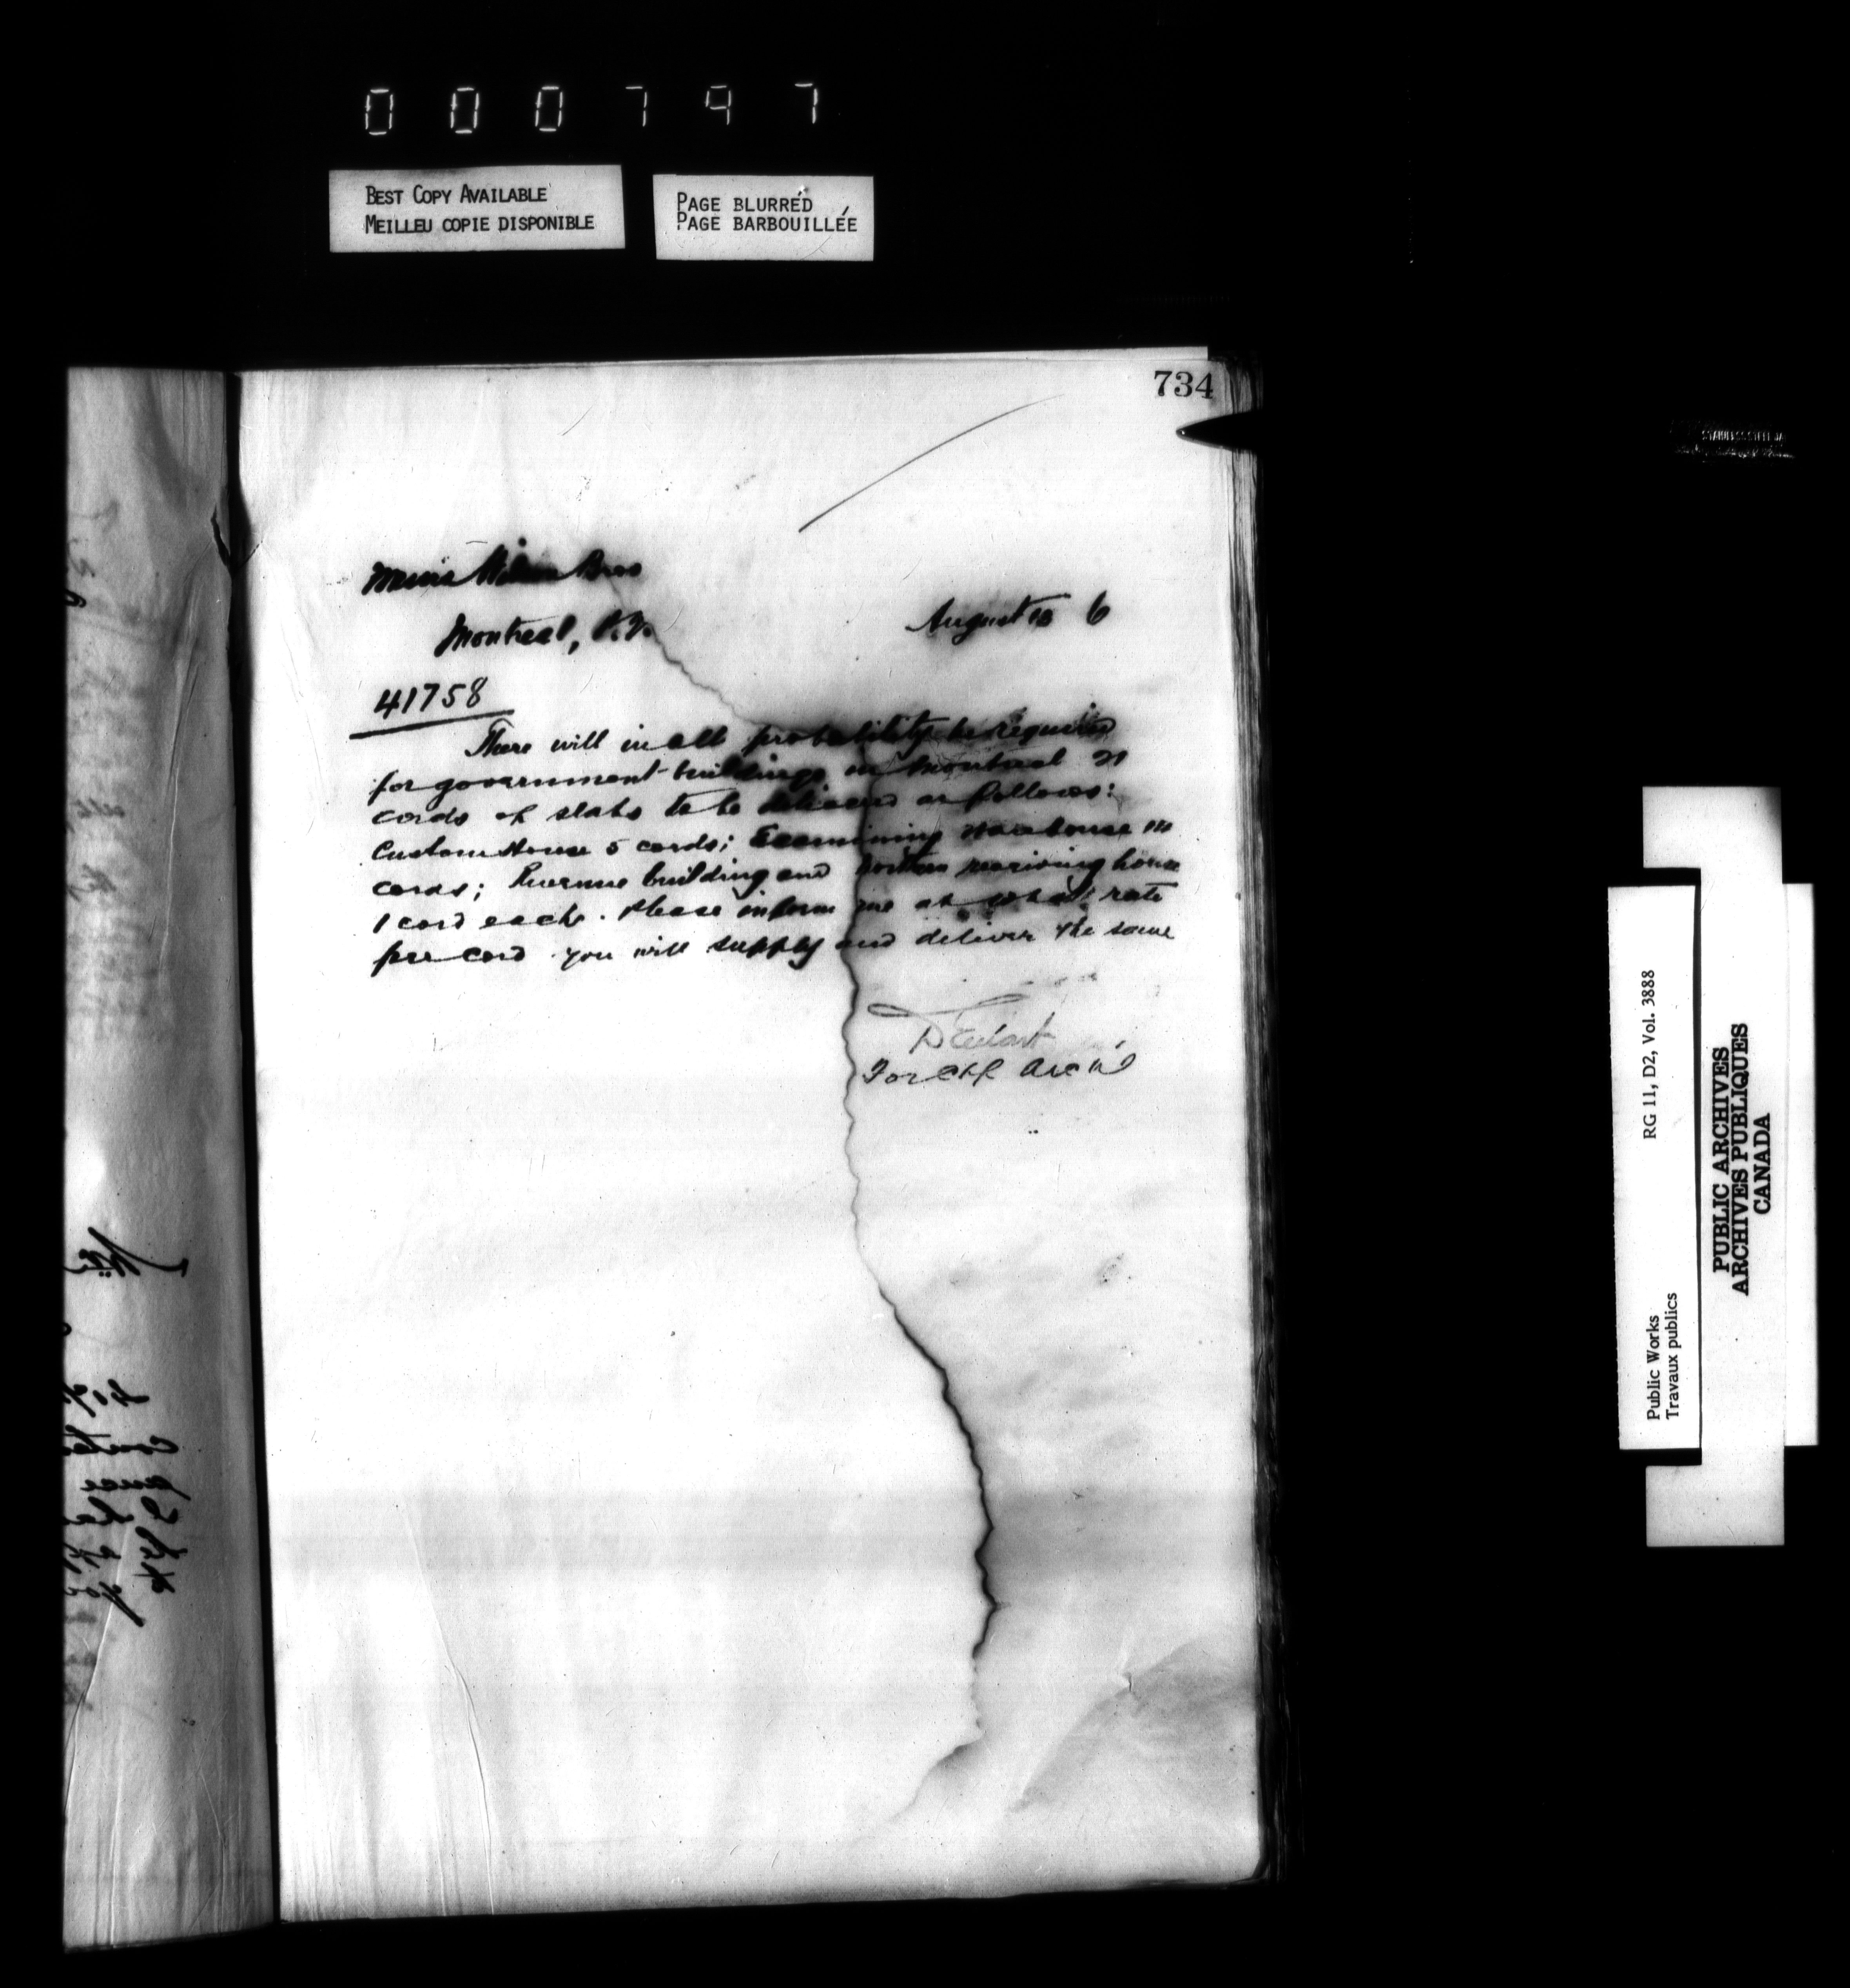 000797
BEST COPY AVAILABLE
MEILLEU COPIE DISPONIBLE
PAGE BLURRÉD
PAGE BARBOUILLÉE
734
Messrs Bros
Montreal, P.Q.
August 18 6
41758
There will in all probability be required
for government buildings in Montreal 21
cords of slabs to be delivered as follows:
Custom House 5 cords; Examining warehouse
cords; Revenue building and receiving house
1 cord each. Please inform me at what rate
per cord you will supply and deliver the same
D Ewart
For Chf Arch't
RG 11, D2, Vol. 3888
Public Works
Travaux publics
PUBLIC ARCHIVES
ARCHIVES PUBLIQUES
CANADA